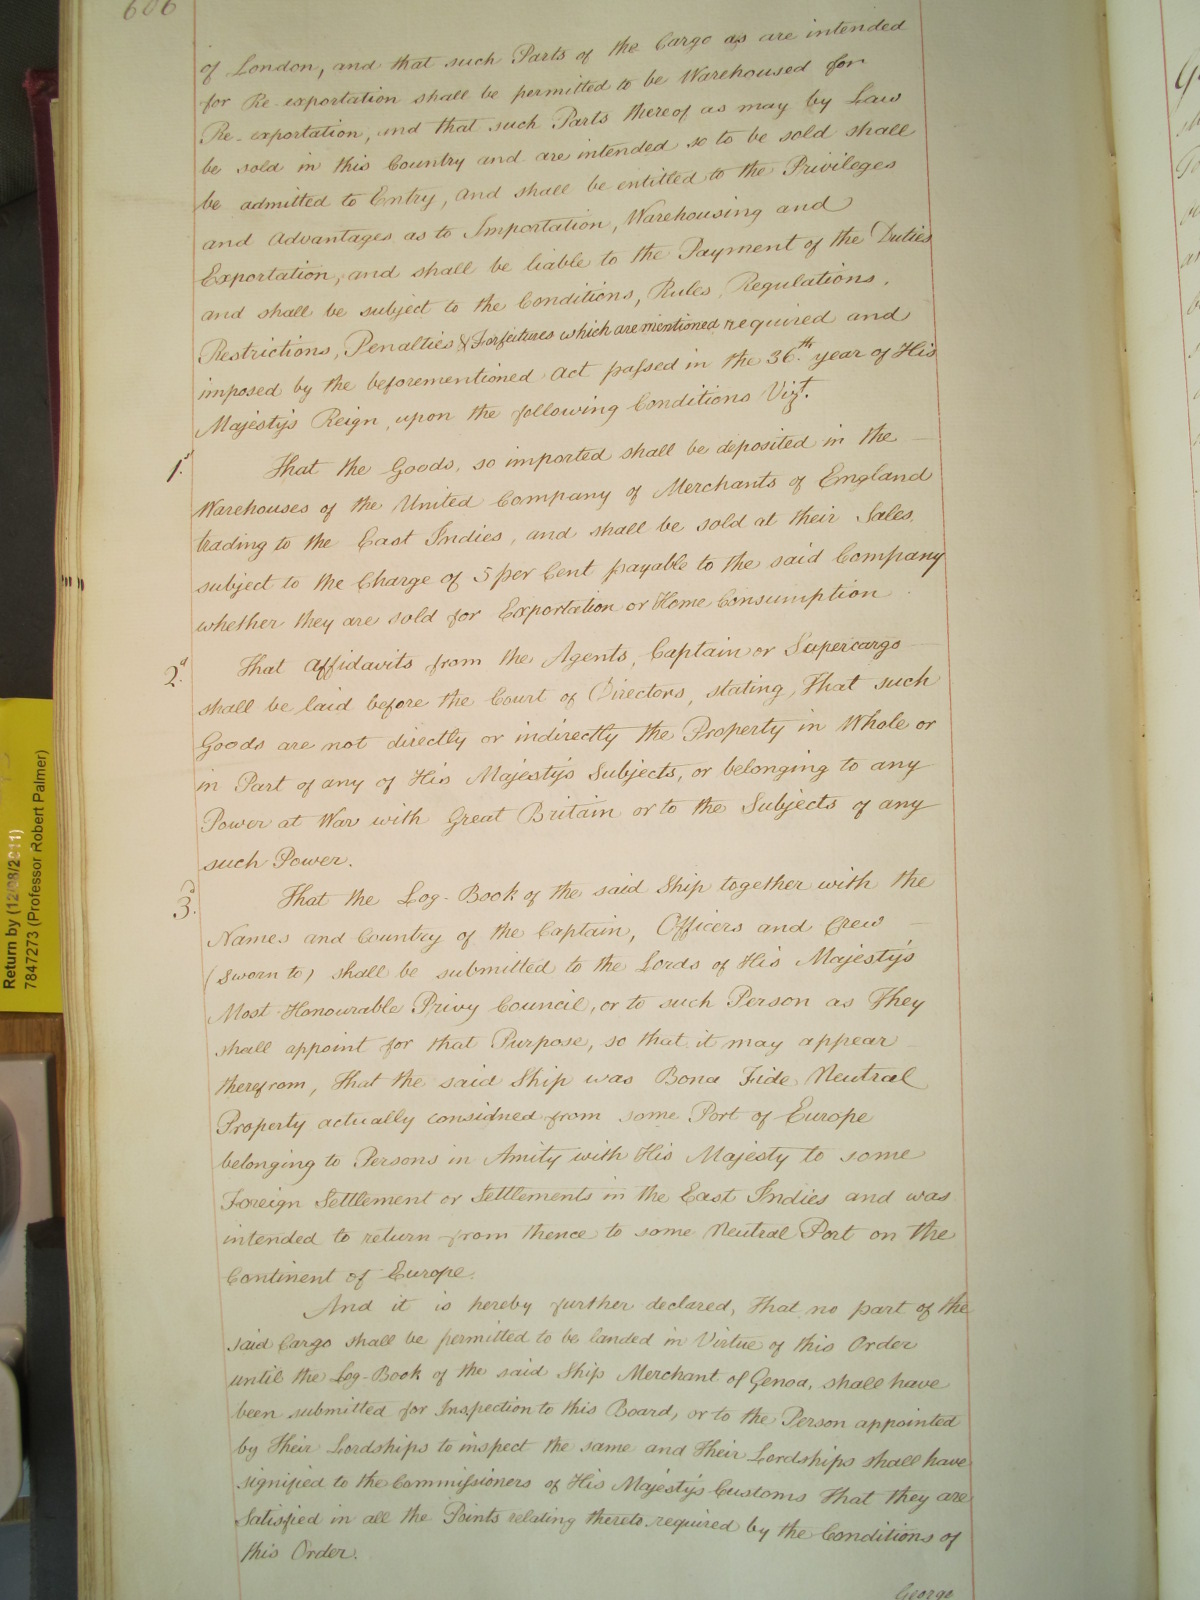 606
of London, and that such Parts of the Cargo as are intended
for Re-exportation shall be permitted to be Warehoused for
Re-exportation, and that such Parts thereof as may by Law
be sold in this Country and are intended so to be sold shall
be admitted to Entry, and shall be entitled to the Privileges
and Advantages as to Importation, Warehousing and
Exportation, and shall be liable to the Payment of the Duties
and shall be subject to the Conditions, Rules, Regulations,
Restrictions, Penalties & Forfeitures which are mentioned required and
imposed by the beforementioned Act passed in the 36th. year of His
Majesty's Reign, upon the following Conditions Vizt.
1st. That the Goods, so imported shall be deposited in the
Warehouses of the United Company of Merchants of England
trading to the East Indies, and shall be sold at their Sales,
subject to the Charge of 5 per Cent payable to the said Company
whether they are sold for Exportation or Home Consumption
2d. That Affidavits from the Agents, Captain or Supercargo
shall be laid before the Court of Directors, stating, That such
Goods are not directly or indirectly the Property in Whole or
in Part of any of His Majesty's Subjects, or belonging to any
Power at War with Great Britain or to the Subjects of any
such Power.
3d. That the Log-Book of the said Ship together with the
Names and Country of the Captain, Officers and Crew
(Sworn to) shall be submitted to the Lords of His Majesty's
Most Honourable Privy Council, or to such Person as They
shall appoint for that Purpose, so that it may appear
therefrom, That the said Ship was Bona Fide Neutral
Property actually considned from some Port of Europe
belonging to Persons in Amity with His Majesty to some
Foreign Settlement or Settlements in the East Indies and was
intended to return from thence to some Neutral Port on the
Continent of Europe.
And it is hereby further declared, That no part of the
said Cargo shall be permitted to be landed in Virtue of this Order
until the Log-Book of the said Ship Merchant of Genoa, shall have
been submitted for Inspection to this Board, or to the Person appointed
by Their Lordships to inspect the same and Their Lordships shall have
signified to the Commissioners of His Majesty's Customs That they are
Satisfied in all the Points relating thereto required by the Conditions of
this Order.
George
Return by (12/08/2011)
7847273 (Professor Robert Palmer)